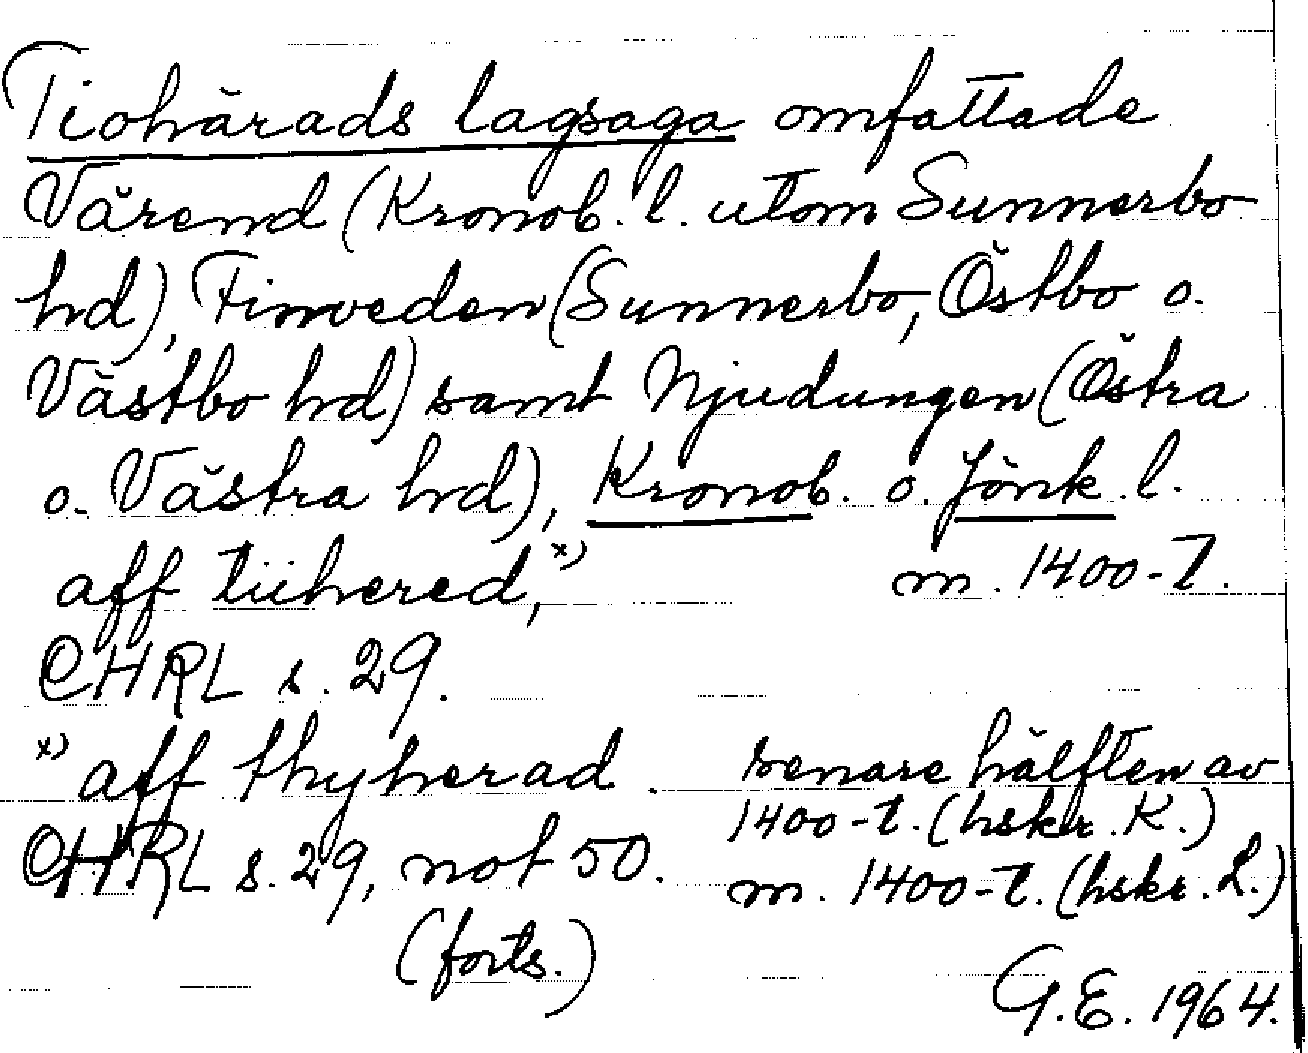 Tiohärads lagsaga omfattade
Värend (Kronob. l. utom Sunnerbo
hd), Finveden (Sunnerbo, Östbo o.
Västbo hd) samt Njudungen (Östra
o. Västra hd), Kronob. o. Jönk. l.
aff tiihered, x) m. 1400-t.
CHRL s. 29.
x) aff thyherad. senare hälften av
1400-t. (hskr. K.)
CHRL s. 29, not 50. m. 1400-t. (hskr. L.)
(forts.)
G.E. 1964.